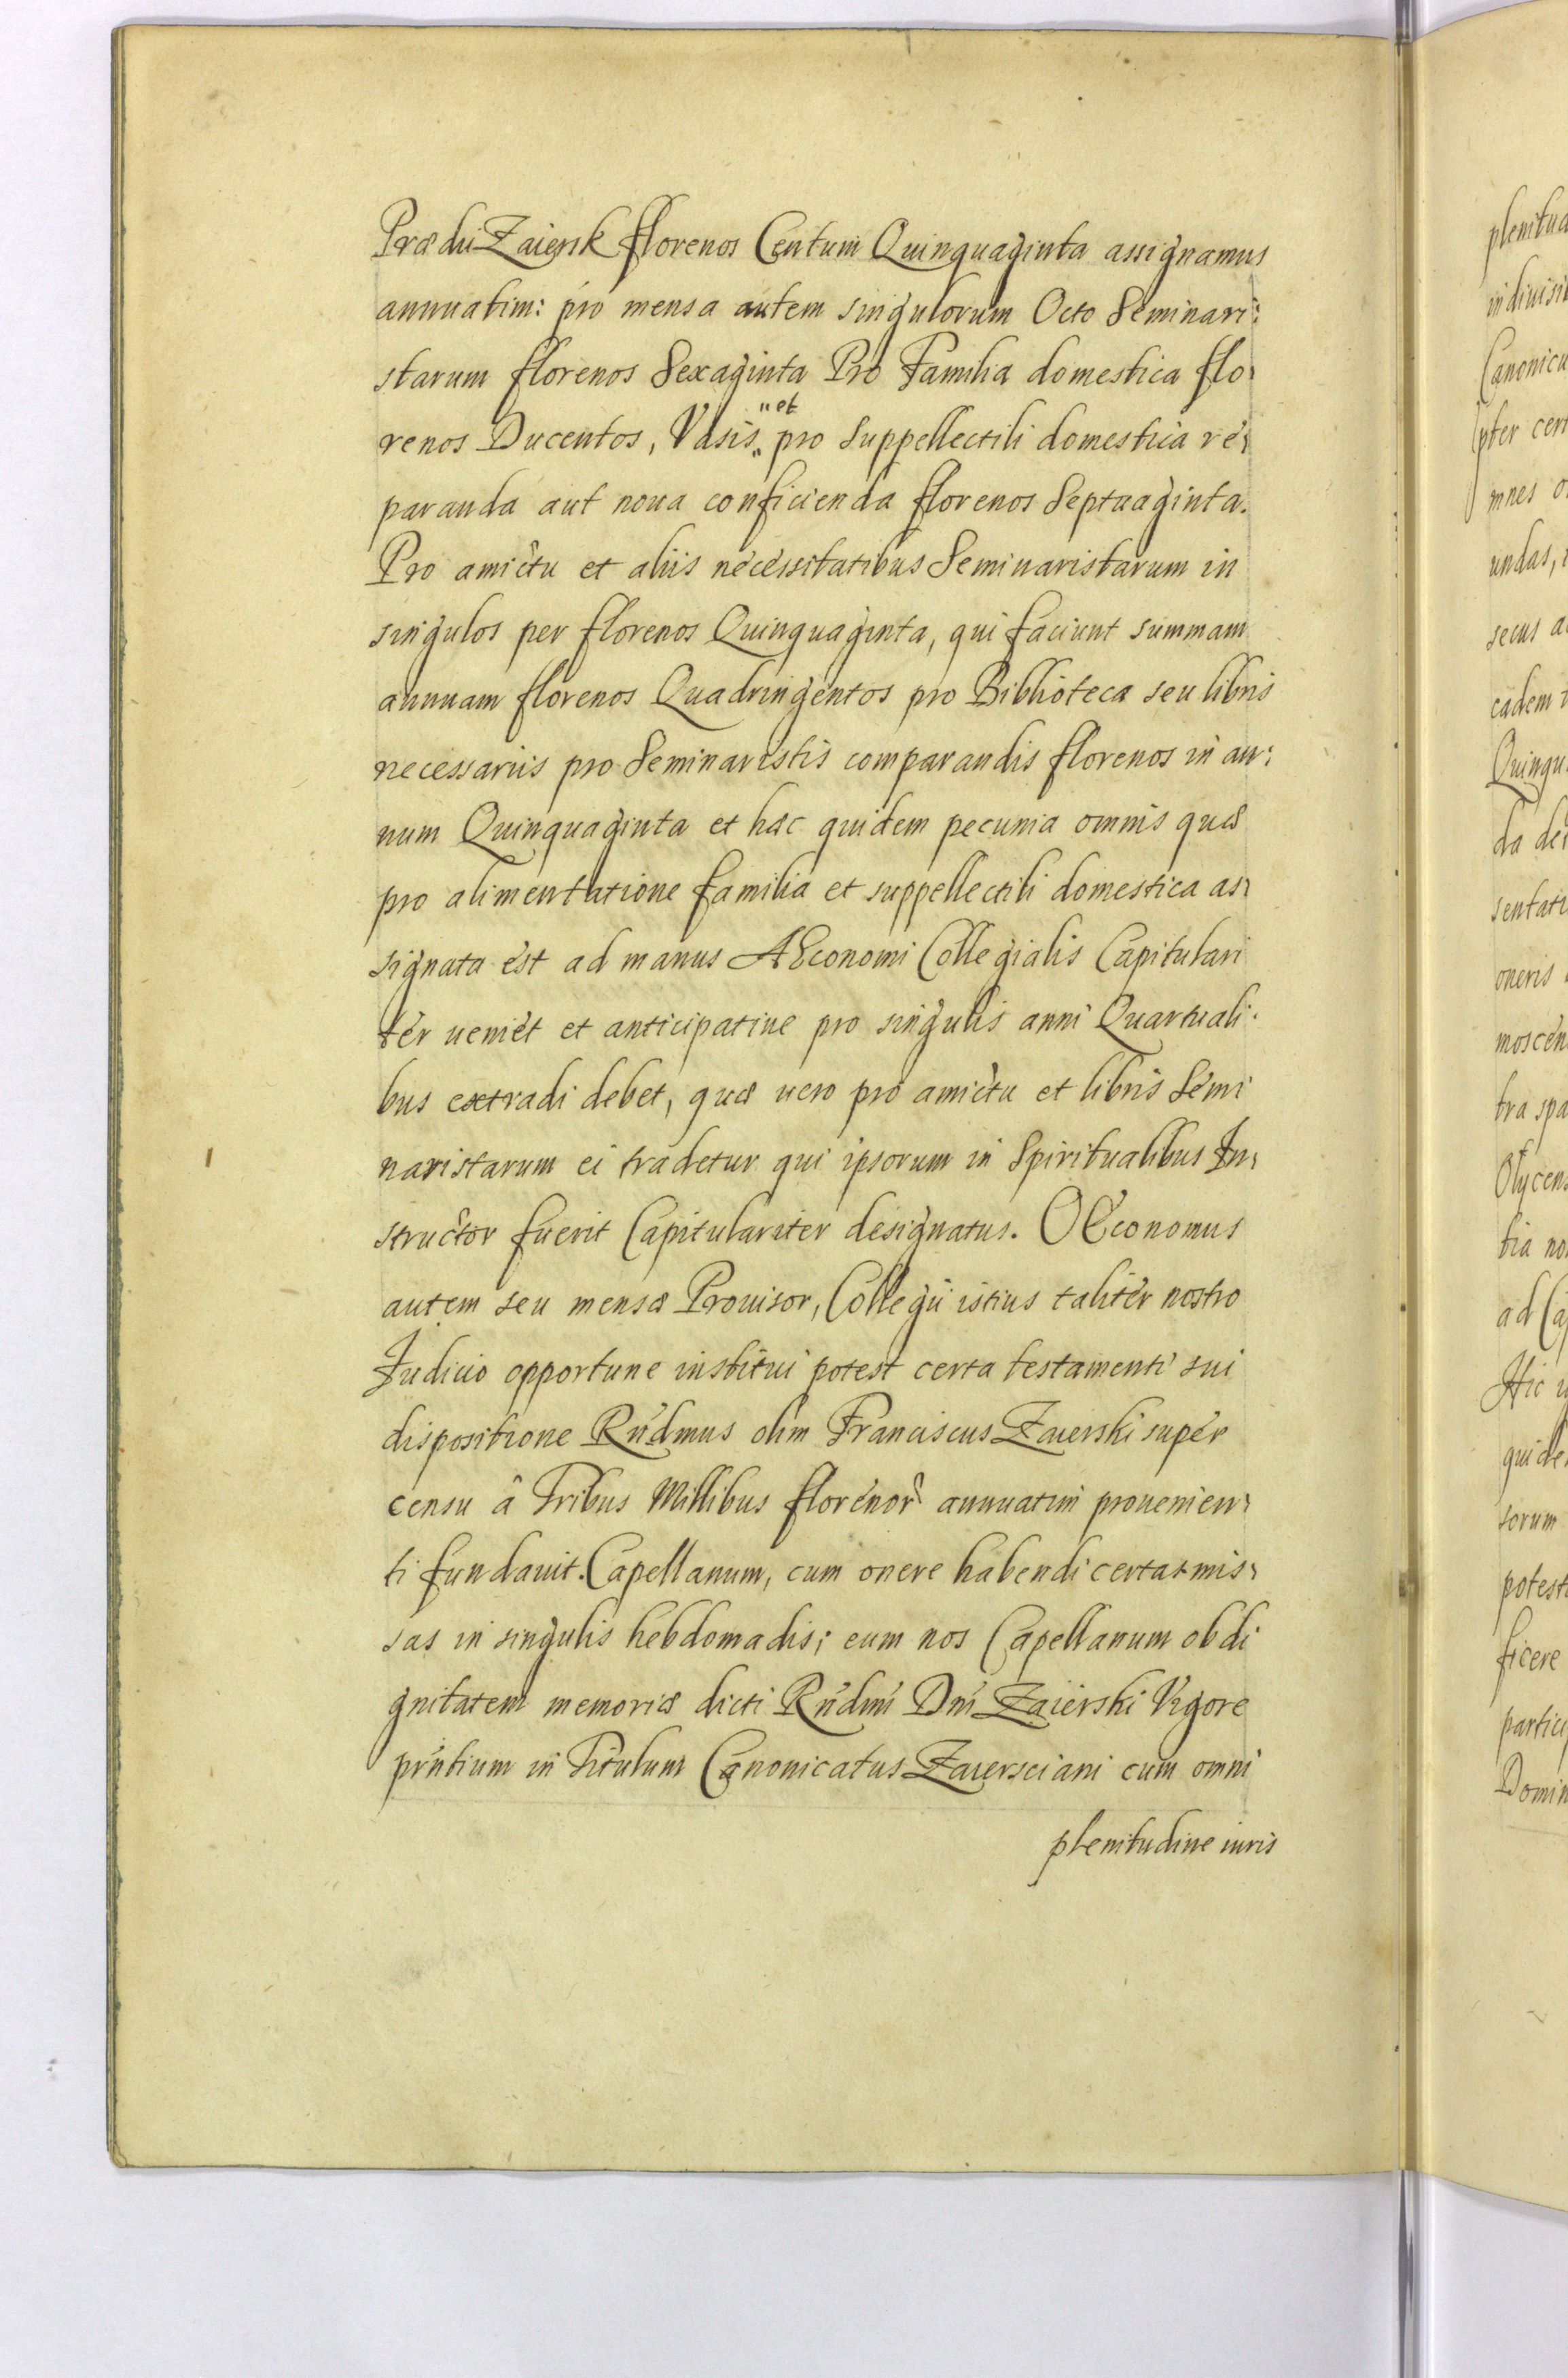 Prædii Zaiersk florenos Centum Quinquaginta assignamus
annuatim: pro mensa autem singulorum Octo Seminari:
starum florenos Sexaginta Pro Familia domestica flo
et
renos Ducentos, Vasis pro Suppellectili domestica re
paranda aut noua conficienda florenos Septuaginta.
Pro amictu et aliis necessitatibus Seminaristarum in
singulos per florenos Quinquaginta, qui faciunt summam
annuam florenos Quadringentos pro Biblioteca seu libris
necessariis pro Seminaristis comparandis florenos in an:
num Quinquaginta et hæc quidem pecunia omnis quæ
pro alimentatione familia et suppellectili domestica as
signata est ad manus AEconomi Collegialis Capitulari
ter ueniet et anticipatiue pro singulis anni Quartuali
bus extradi debet, quæ uero pro amictu et libris Semi
naristarum ei tradetur qui ipsorum in Spiritualibus In
structor fuerit Capitulariter designatus. OEconomus
autem seu mensæ Prouisor, Collegii istius taliter nostro
Iudicio opportune institui potest certa testamenti sui
dispositione Rndmus olim Franciscus Zaierski super
censu â Tribus Millibus florenor annuatim prouenien
ti fundauit. Capellanum, cum onere habendi certas mis
sas in singulis hebdomadis; eum nos Capellanum ob di
gnitatem memoriæ dicti Rndmi Dni Zaierski Vigore
prntium in Titulum Canonicatus Zaiersciani cum omni
plenitudine iuris